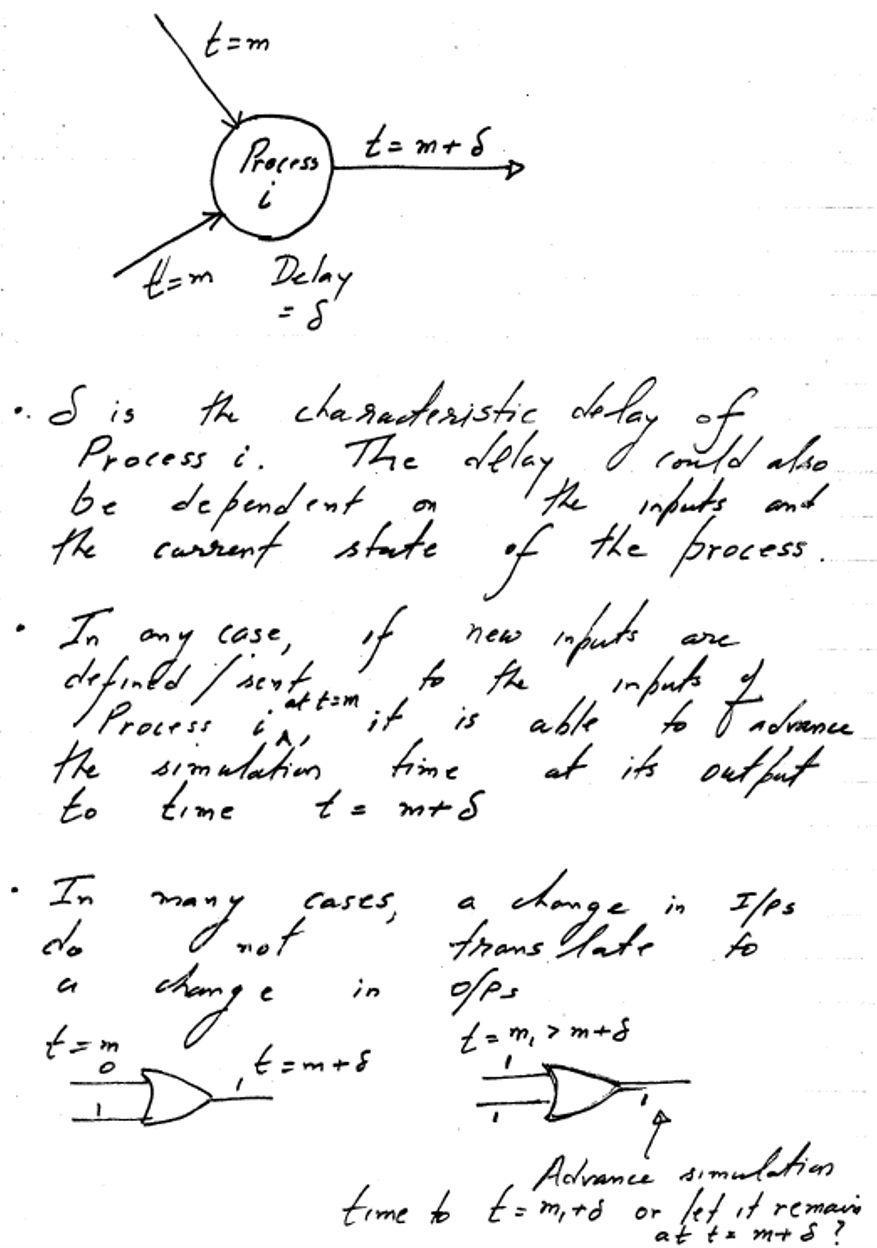 t=m
Process
t = m + δ
i
t=m
Delay
= δ
• δ is the characteristic delay of
Process i. The delay could also
be dependent on the inputs and
the current state of the process.
• In any case, if new inputs are
defined / sent to the inputs of
Process i at t=m, it is able to advance
the simulation time at its output
to time t = m+δ
• In many cases, a change in I/Ps
do not translate to
a change in O/Ps
t = m
0
1
1
t = m + δ
t = m₁ > m + δ
1
1
1
Advance simulation
time to t = m₁+δ or let it remain
at t = m+δ ?